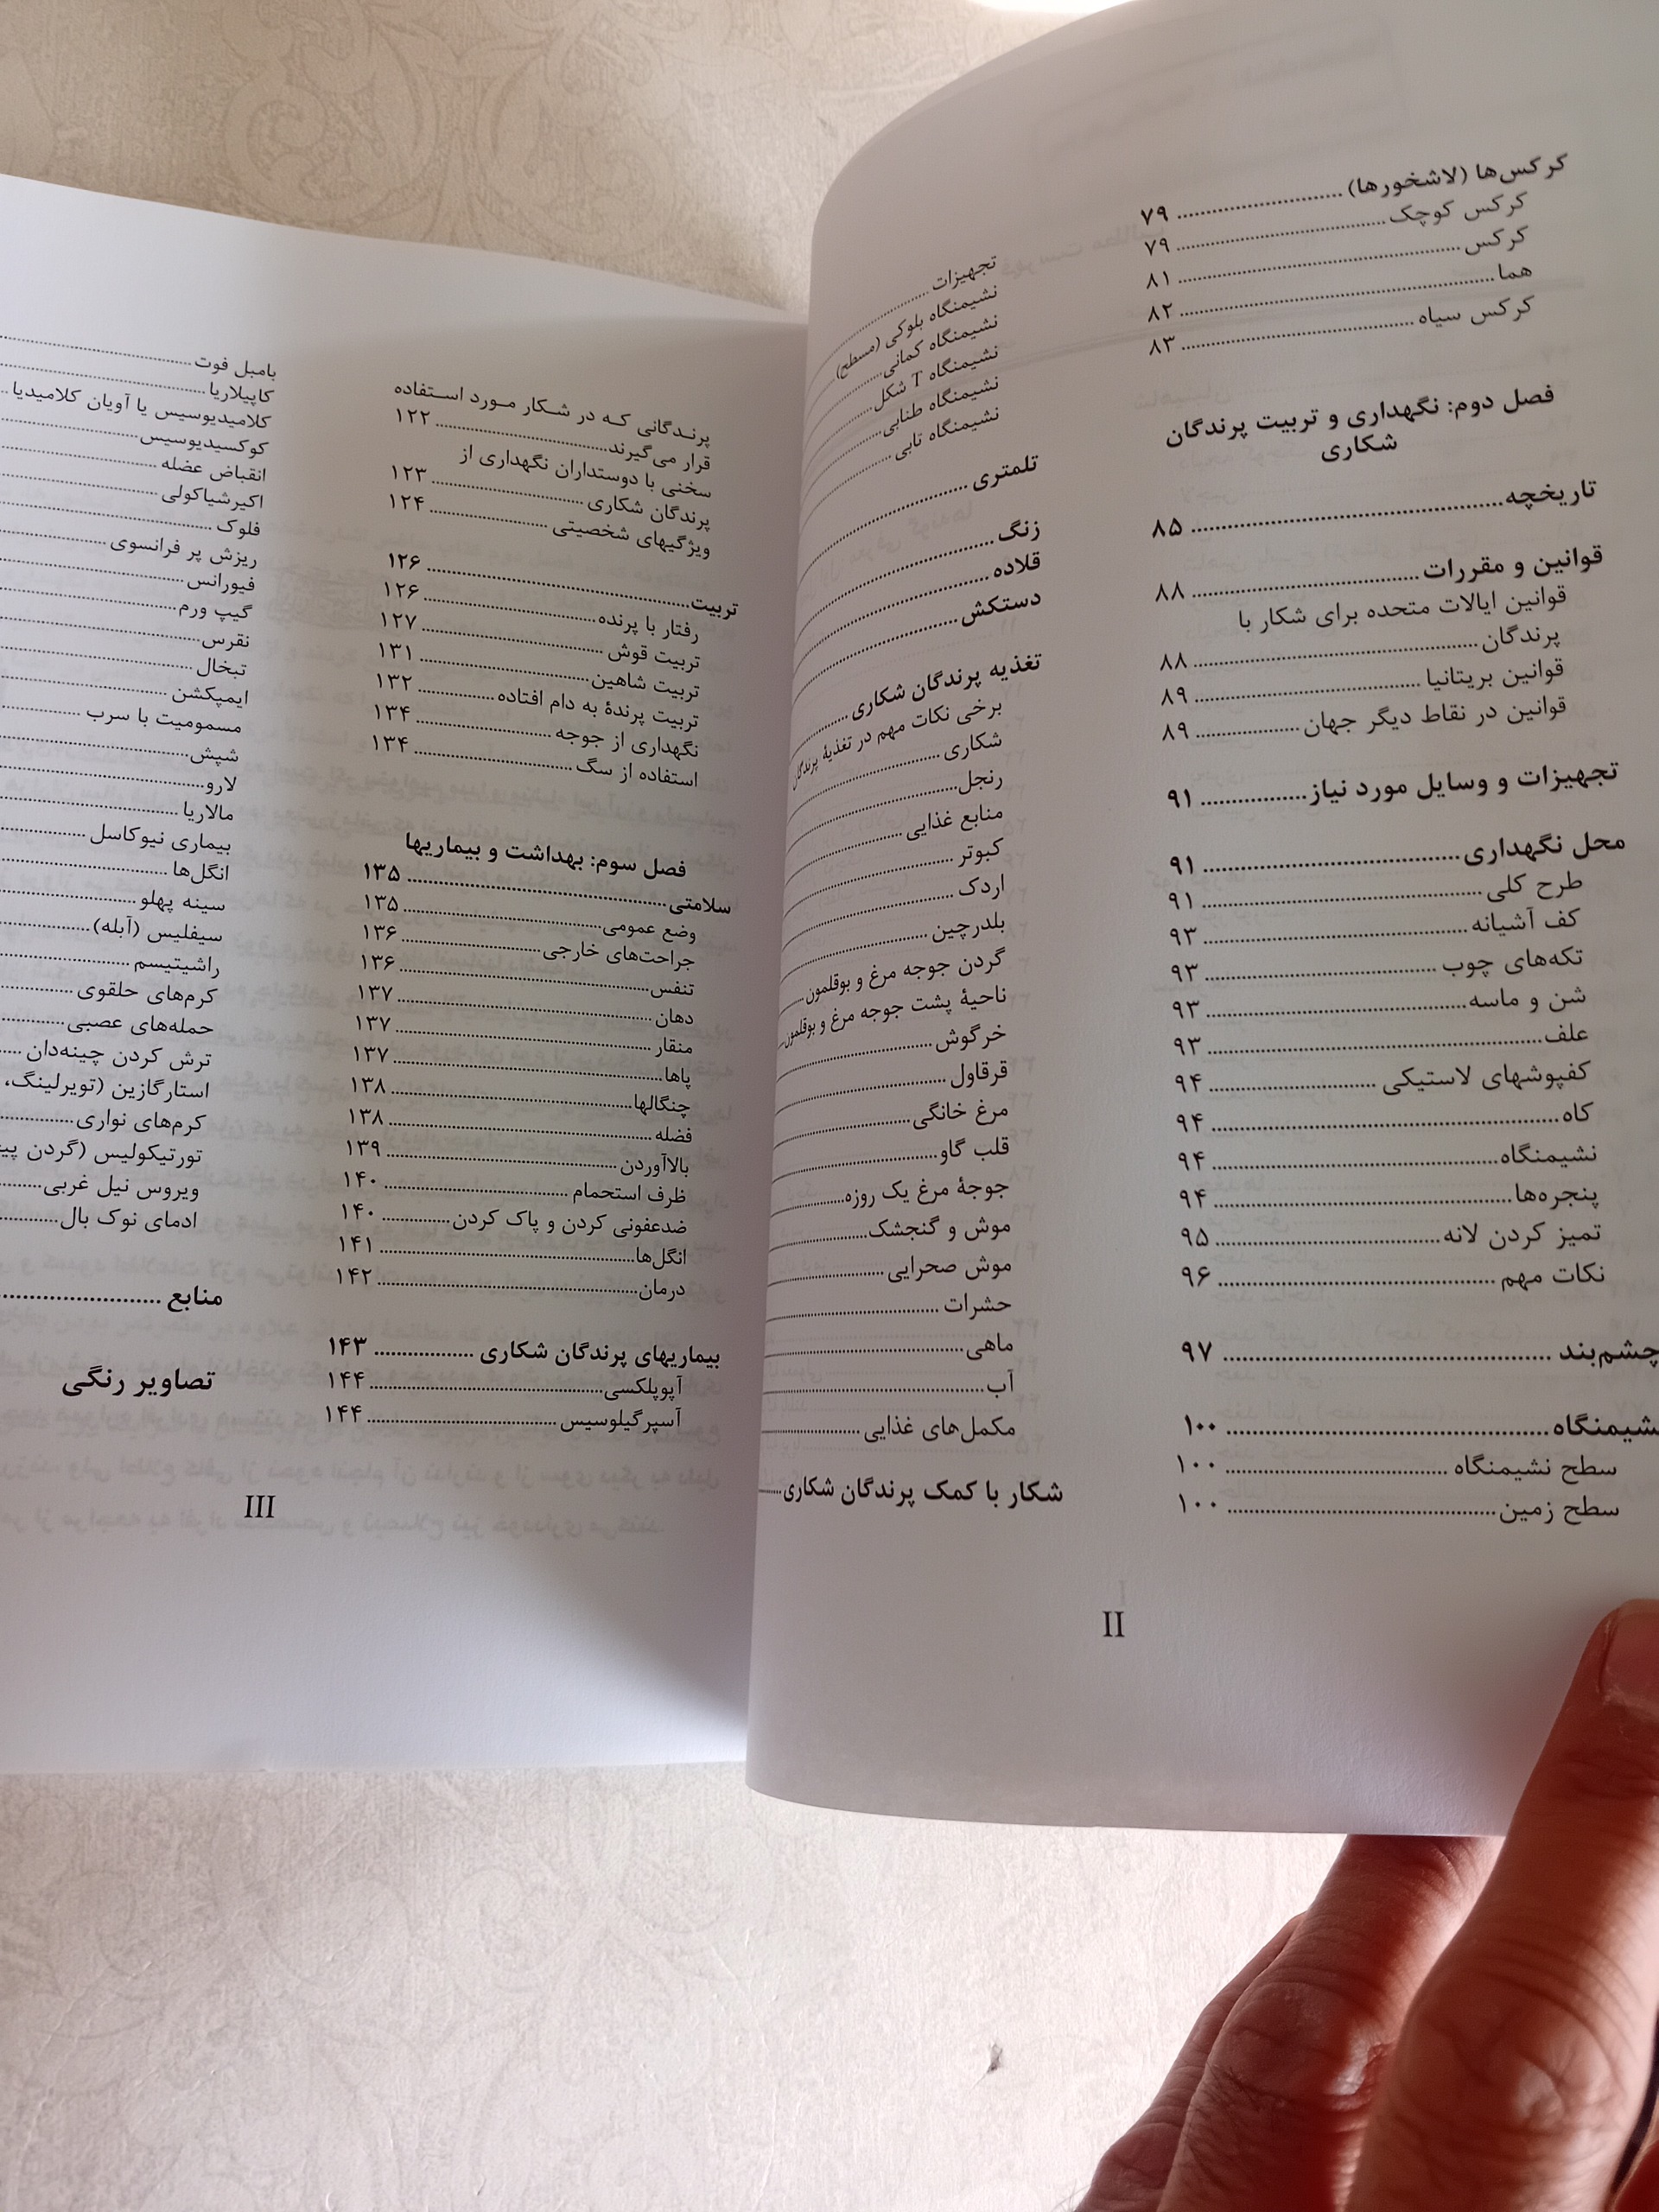 کرکس‌ها (لاشخورها) ۷۹
کرکس کوچک ۷۹
کرکس ۸۱
هما ۸۲
کرکس سیاه ۸۳
فصل دوم: نگهداری و تربیت پرندگان
شکاری
تاریخچه ۸۵
قوانین و مقررات ۸۸
قوانین ایالات متحده برای شکار با
پرندگان ۸۸
قوانین بریتانیا ۸۹
قوانین در نقاط دیگر جهان ۸۹
تجهیزات و وسایل مورد نیاز ۹۱
محل نگهداری ۹۱
طرح کلی ۹۱
کف آشیانه ۹۳
تکه‌های چوب ۹۳
شن و ماسه ۹۳
علف ۹۳
کفپوشهای لاستیکی ۹۴
کاه ۹۴
نشیمنگاه ۹۴
پنجره‌ها ۹۴
تمیز کردن لانه ۹۵
نکات مهم ۹۶
چشم‌بند ۹۷
شیمنگاه ۱۰۰
سطح نشیمنگاه ۱۰۰
سطح زمین ۱۰۰
تجهیزات
نشیمنگاه بلوکی (مسطح)
نشیمنگاه کمانی
نشیمنگاه T شکل
نشیمنگاه طنابی
نشیمنگاه تابی
تلمتری
زنگ
قلاده
دستکش
تغذیه پرندگان شکاری
برخی نکات مهم در تغذیهٔ پرندگان
شکاری
رنجل
منابع غذایی
کبوتر
اردک
بلدرچین
گردن جوجه مرغ و بوقلمون
ناحیهٔ پشت جوجه مرغ و بوقلمون
خرگوش
قرقاول
مرغ خانگی
قلب گاو
جوجهٔ مرغ یک روزه
موش و گنجشک
موش صحرایی
حشرات
ماهی
آب
مکمل‌های غذایی
شکار با کمک پرندگان شکاری
II
پرندگانی که در شکار مورد استفاده
قرار می‌گیرند ۱۲۲
سخنی با دوستداران نگهداری از
پرندگان شکاری ۱۲۳
ویژگیهای شخصیتی ۱۲۴
تربیت ۱۲۶
رفتار با پرنده ۱۲۶
تربیت قوش ۱۲۷
تربیت شاهین ۱۳۱
تربیت پرندهٔ به دام افتاده ۱۳۲
نگهداری از جوجه ۱۳۴
استفاده از سگ ۱۳۴
فصل سوم: بهداشت و بیماریها
سلامتی ۱۳۵
وضع عمومی ۱۳۵
جراحت‌های خارجی ۱۳۶
تنفس ۱۳۶
دهان ۱۳۷
منقار ۱۳۷
پاها ۱۳۷
چنگالها ۱۳۸
فضله ۱۳۸
بالاآوردن ۱۳۹
ظرف استحمام ۱۴۰
ضدعفونی کردن و پاک کردن ۱۴۰
انگل‌ها ۱۴۱
درمان ۱۴۲
بیماریهای پرندگان شکاری ۱۴۳
آپوپلکسی ۱۴۴
آسپرگیلوسیس ۱۴۴
بامبل فوت
کاپیلاریا
کلامیدیوسیس یا آویان کلامیدیا
کوکسیدیوسیس
انقباض عضله
اکیرشیاکولی
فلوک
ریزش پر فرانسوی
فیورانس
گیپ ورم
نقرس
تبخال
ایمپکشن
مسمومیت با سرب
شپش
لارو
مالاریا
بیماری نیوکاسل
انگل‌ها
سینه پهلو
سیفلیس (آبله)
راشیتیسم
کرم‌های حلقوی
حمله‌های عصبی
ترش کردن چینه‌دان
استارگازین (تویرلینگ،
کرم‌های نواری
تورتیکولیس (گردن
ویروس نیل غربی
ادمای نوک بال
منابع
تصاویر رنگی
III